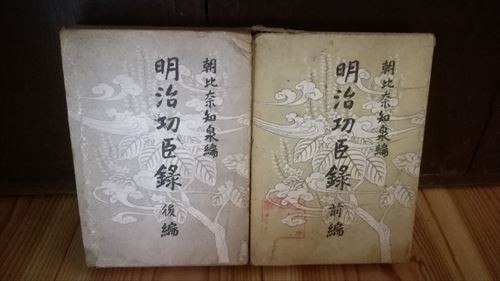 朝比奈知泉編
明治功臣錄
後編
朝比奈知泉編
明治功臣錄
前編